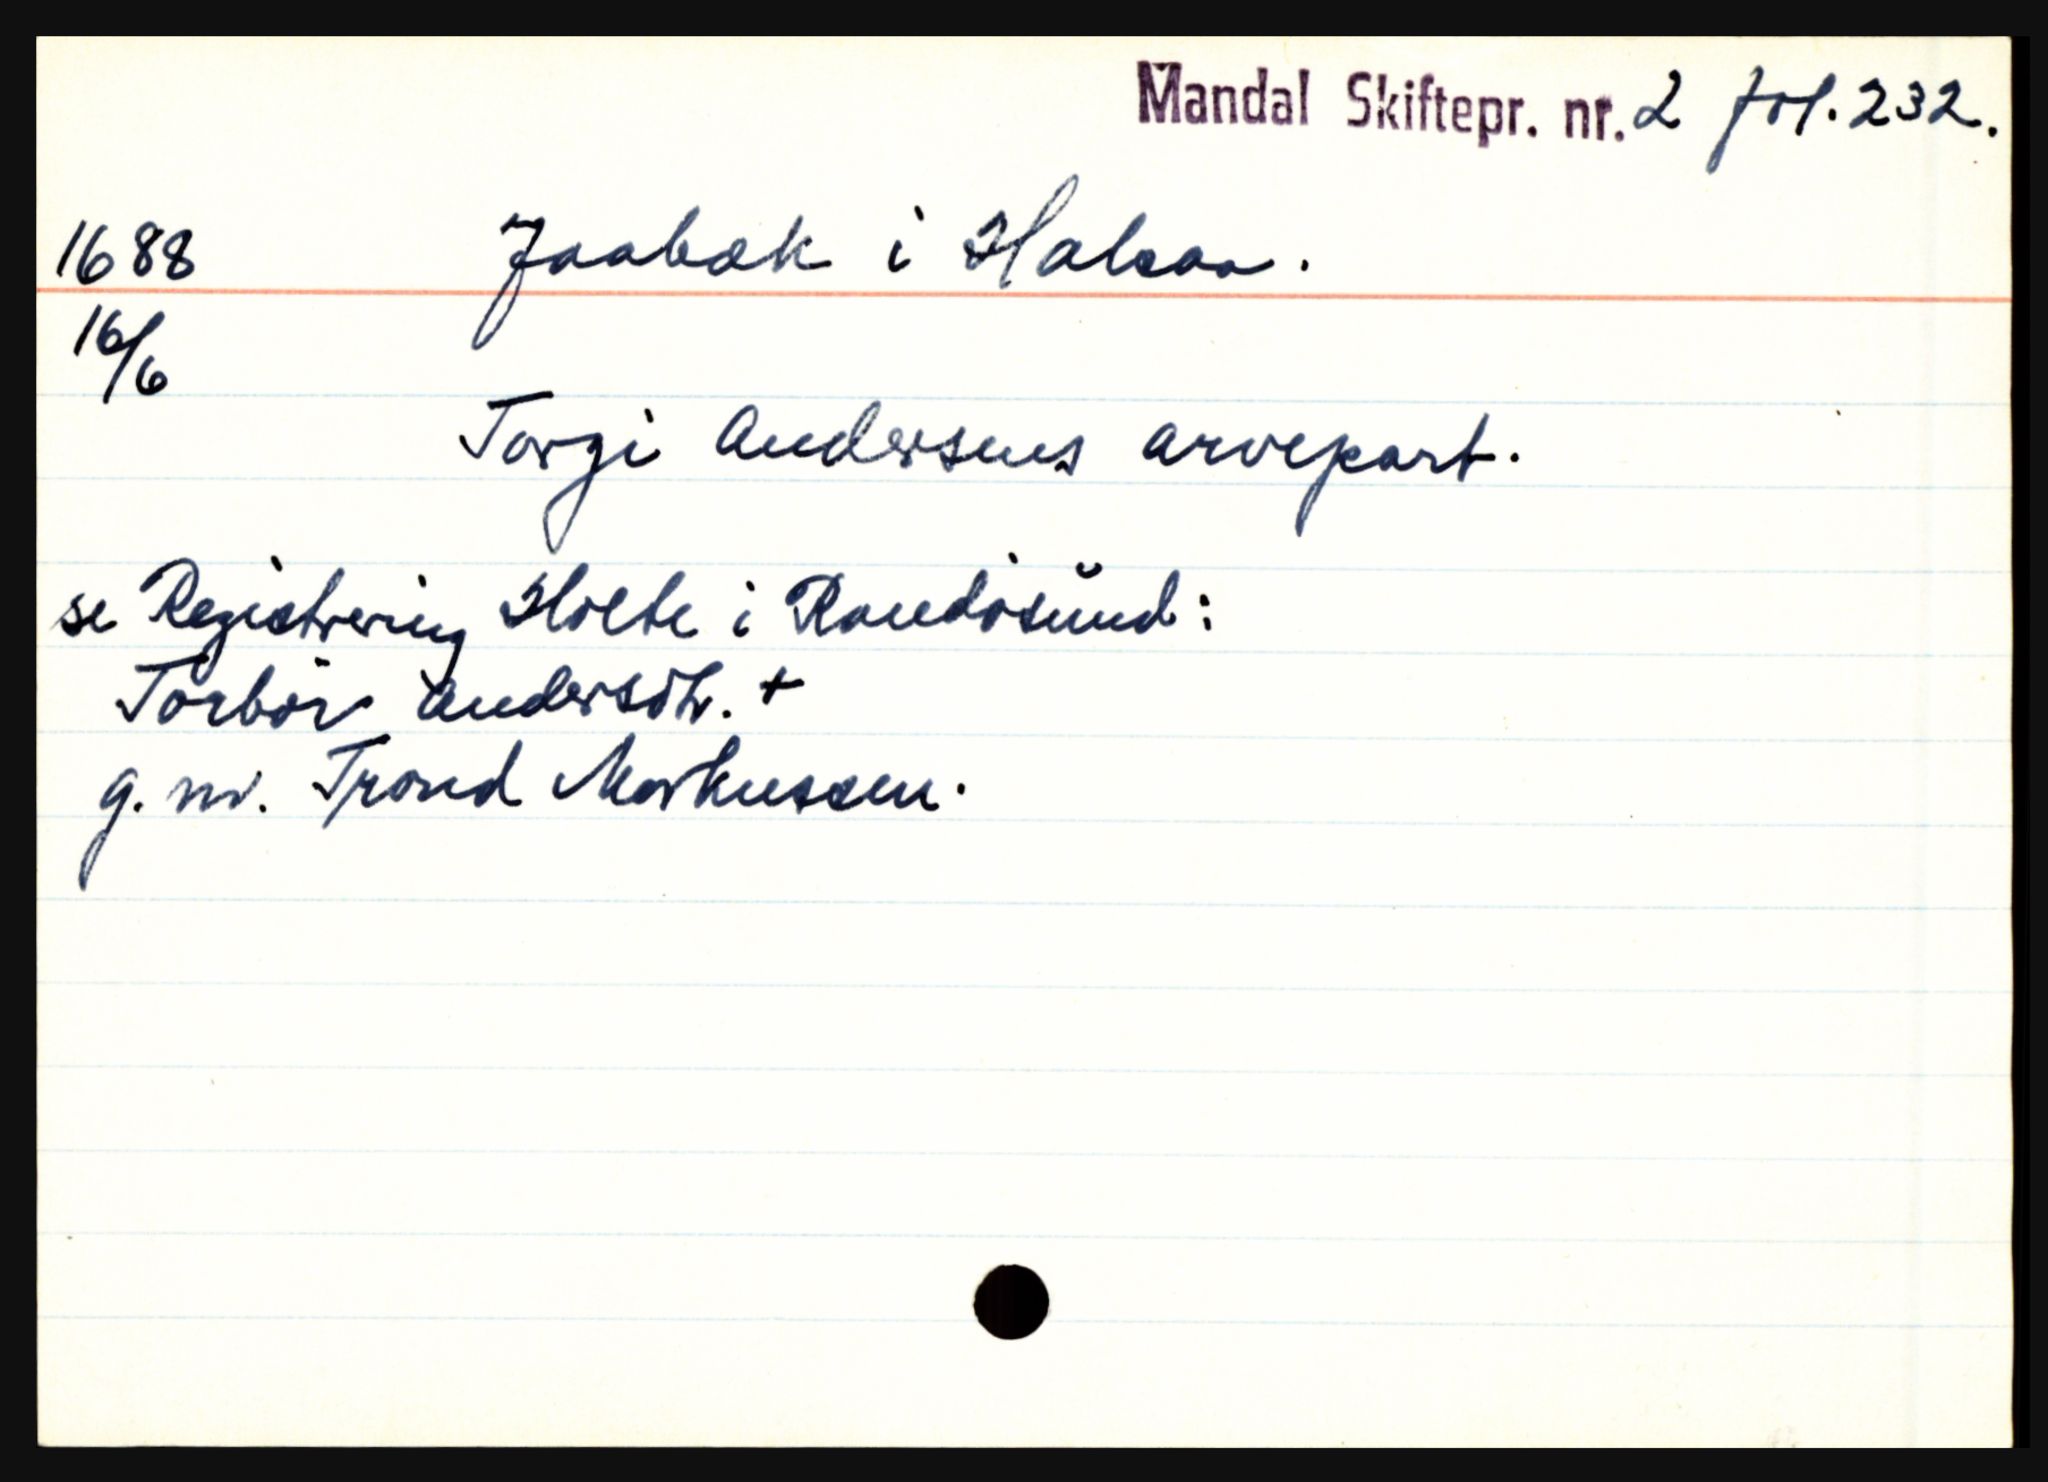 Mandal Skiftepr. nr. 2 fol. 232.
1688 Jaabæk i Halsaa.
16/6
Torgi Andersens arvepart.
se Registrering Holte i Randøsund:
Torbør Andersdtr. +
g. m. Trond Markussen.